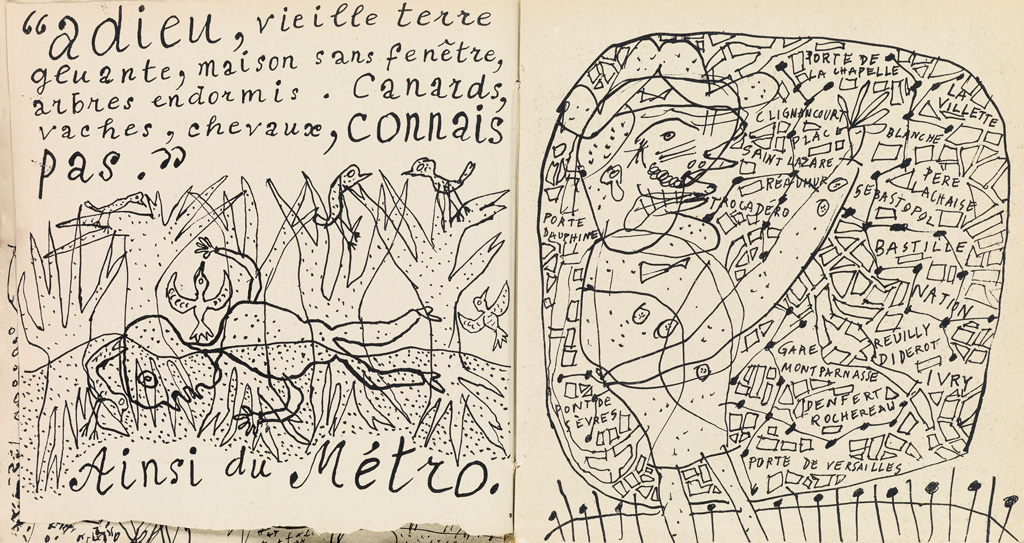 “adieu, vieille terre
gluante, maison sans fenêtre,
arbres endormis. Canards,
vaches, chevaux, connais
pas.”
Ainsi du Métro.
PORTE DE
LA CHAPELLE
LA
VILLETTE
CLIGNANCOURT
PLACE
BLANCHE
SAINT LAZARE
PÈRE
LACHAISE
RÉAUMUR
SÉBASTOPOL
TROCADERO
PORTE
DAUPHINE
BASTILLE
NATION
REUILLY
DIDEROT
GARE
MONTPARNASSE
IVRY
DENFERT
ROCHEREAU
PONT DE
SÈVRES
PORTE DE VERSAILLES